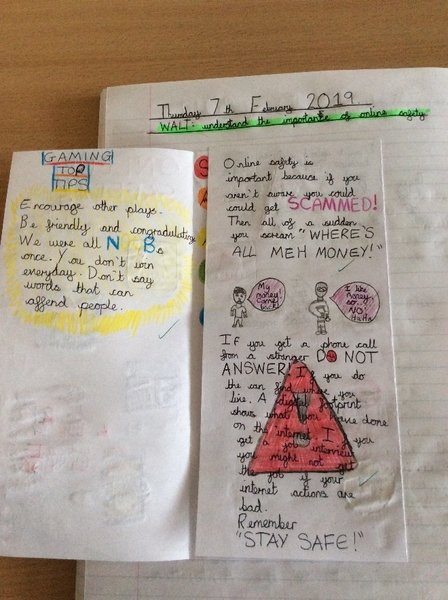 Thursday 7th February 2019
WALT: understand the importance of online safety
GAMING
TOP
TIPS
Encourage other plays.
Be friendly and congradulating
We were all NOBs
once. You don't win
everyday. Don't say
words that can
affend people.
Online safety is
important because if you
aren't aware you could
could get SCAMMED!
Then all of a sudden
you scream "WHERE'S
ALL MEH MONEY!"
My
money!
Come
back
I like
money
so..
NO!
HaHa
IF you get a phone call
from a stranger DO NOT
ANSWER! If you do
the can find where you
live. A digital footprint
shows what you have done
on the internet. If you
get a job interview
you might not get
the job if your
internet actions are
bad.
Remember
"STAY SAFE!"